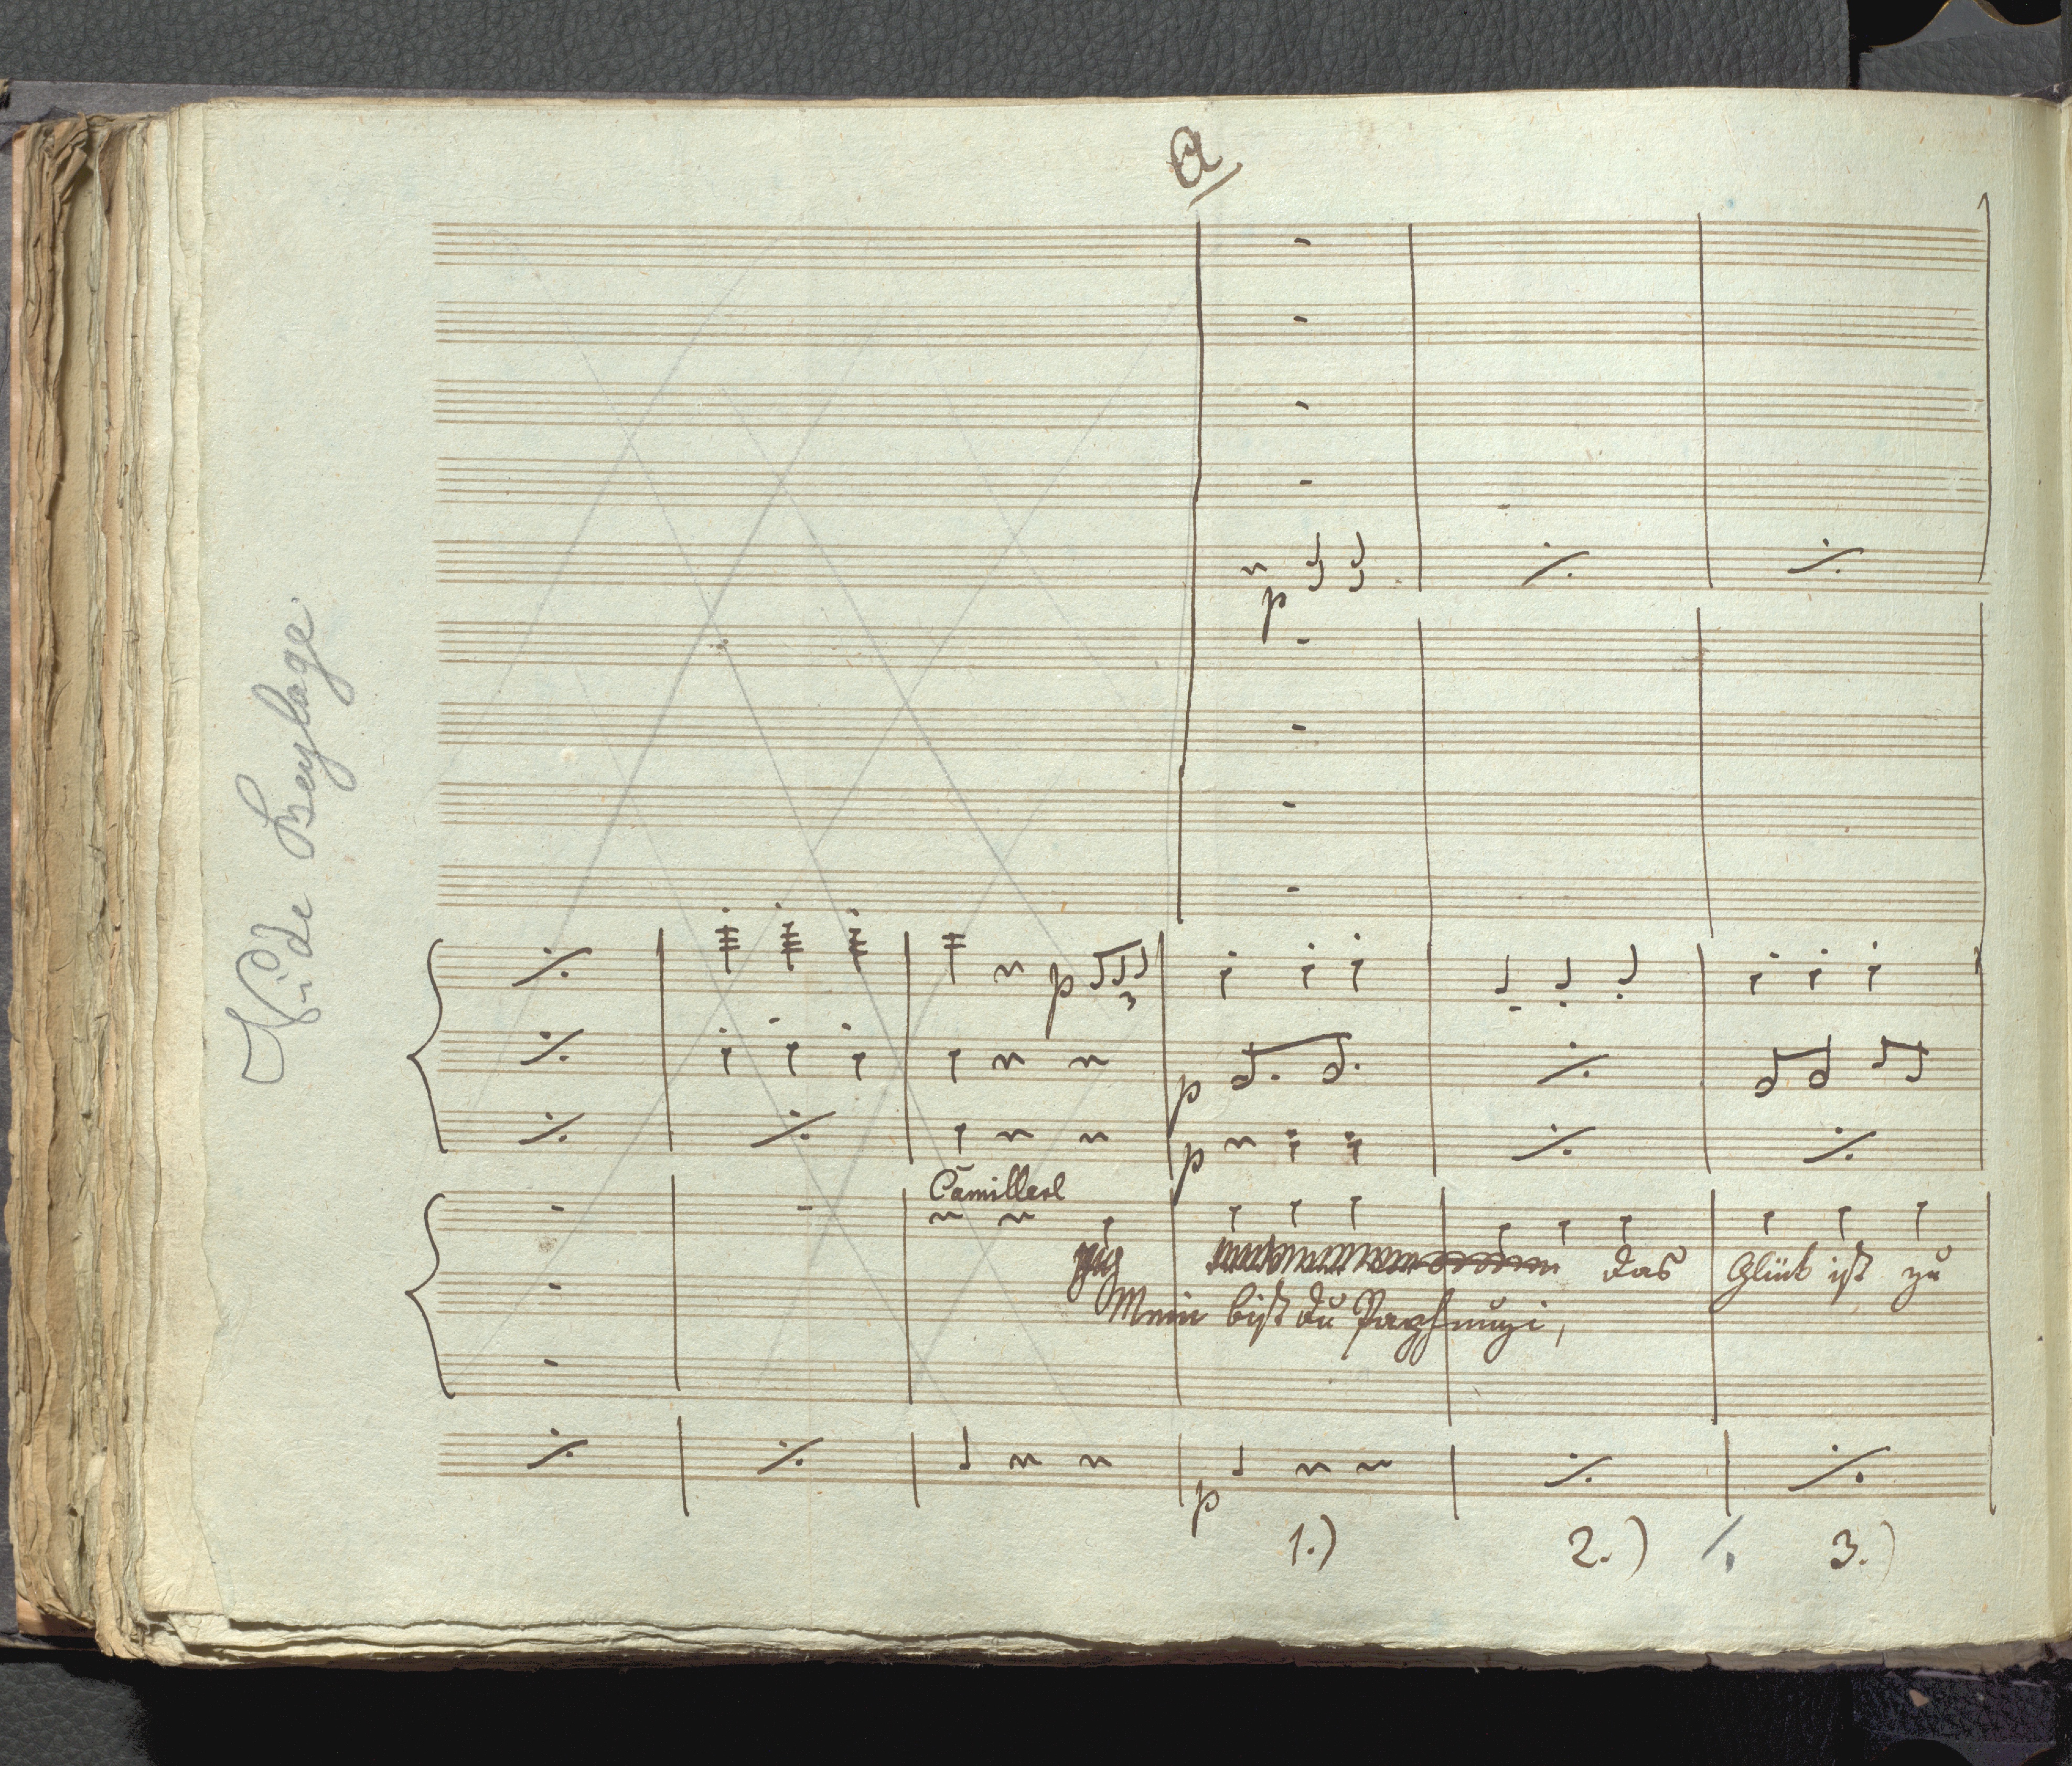 a
Vide Beylage.
p
p 3
p
p
Camillerl
das Glück ist zu
Mein bist du
p
1.) 2.) 3.)